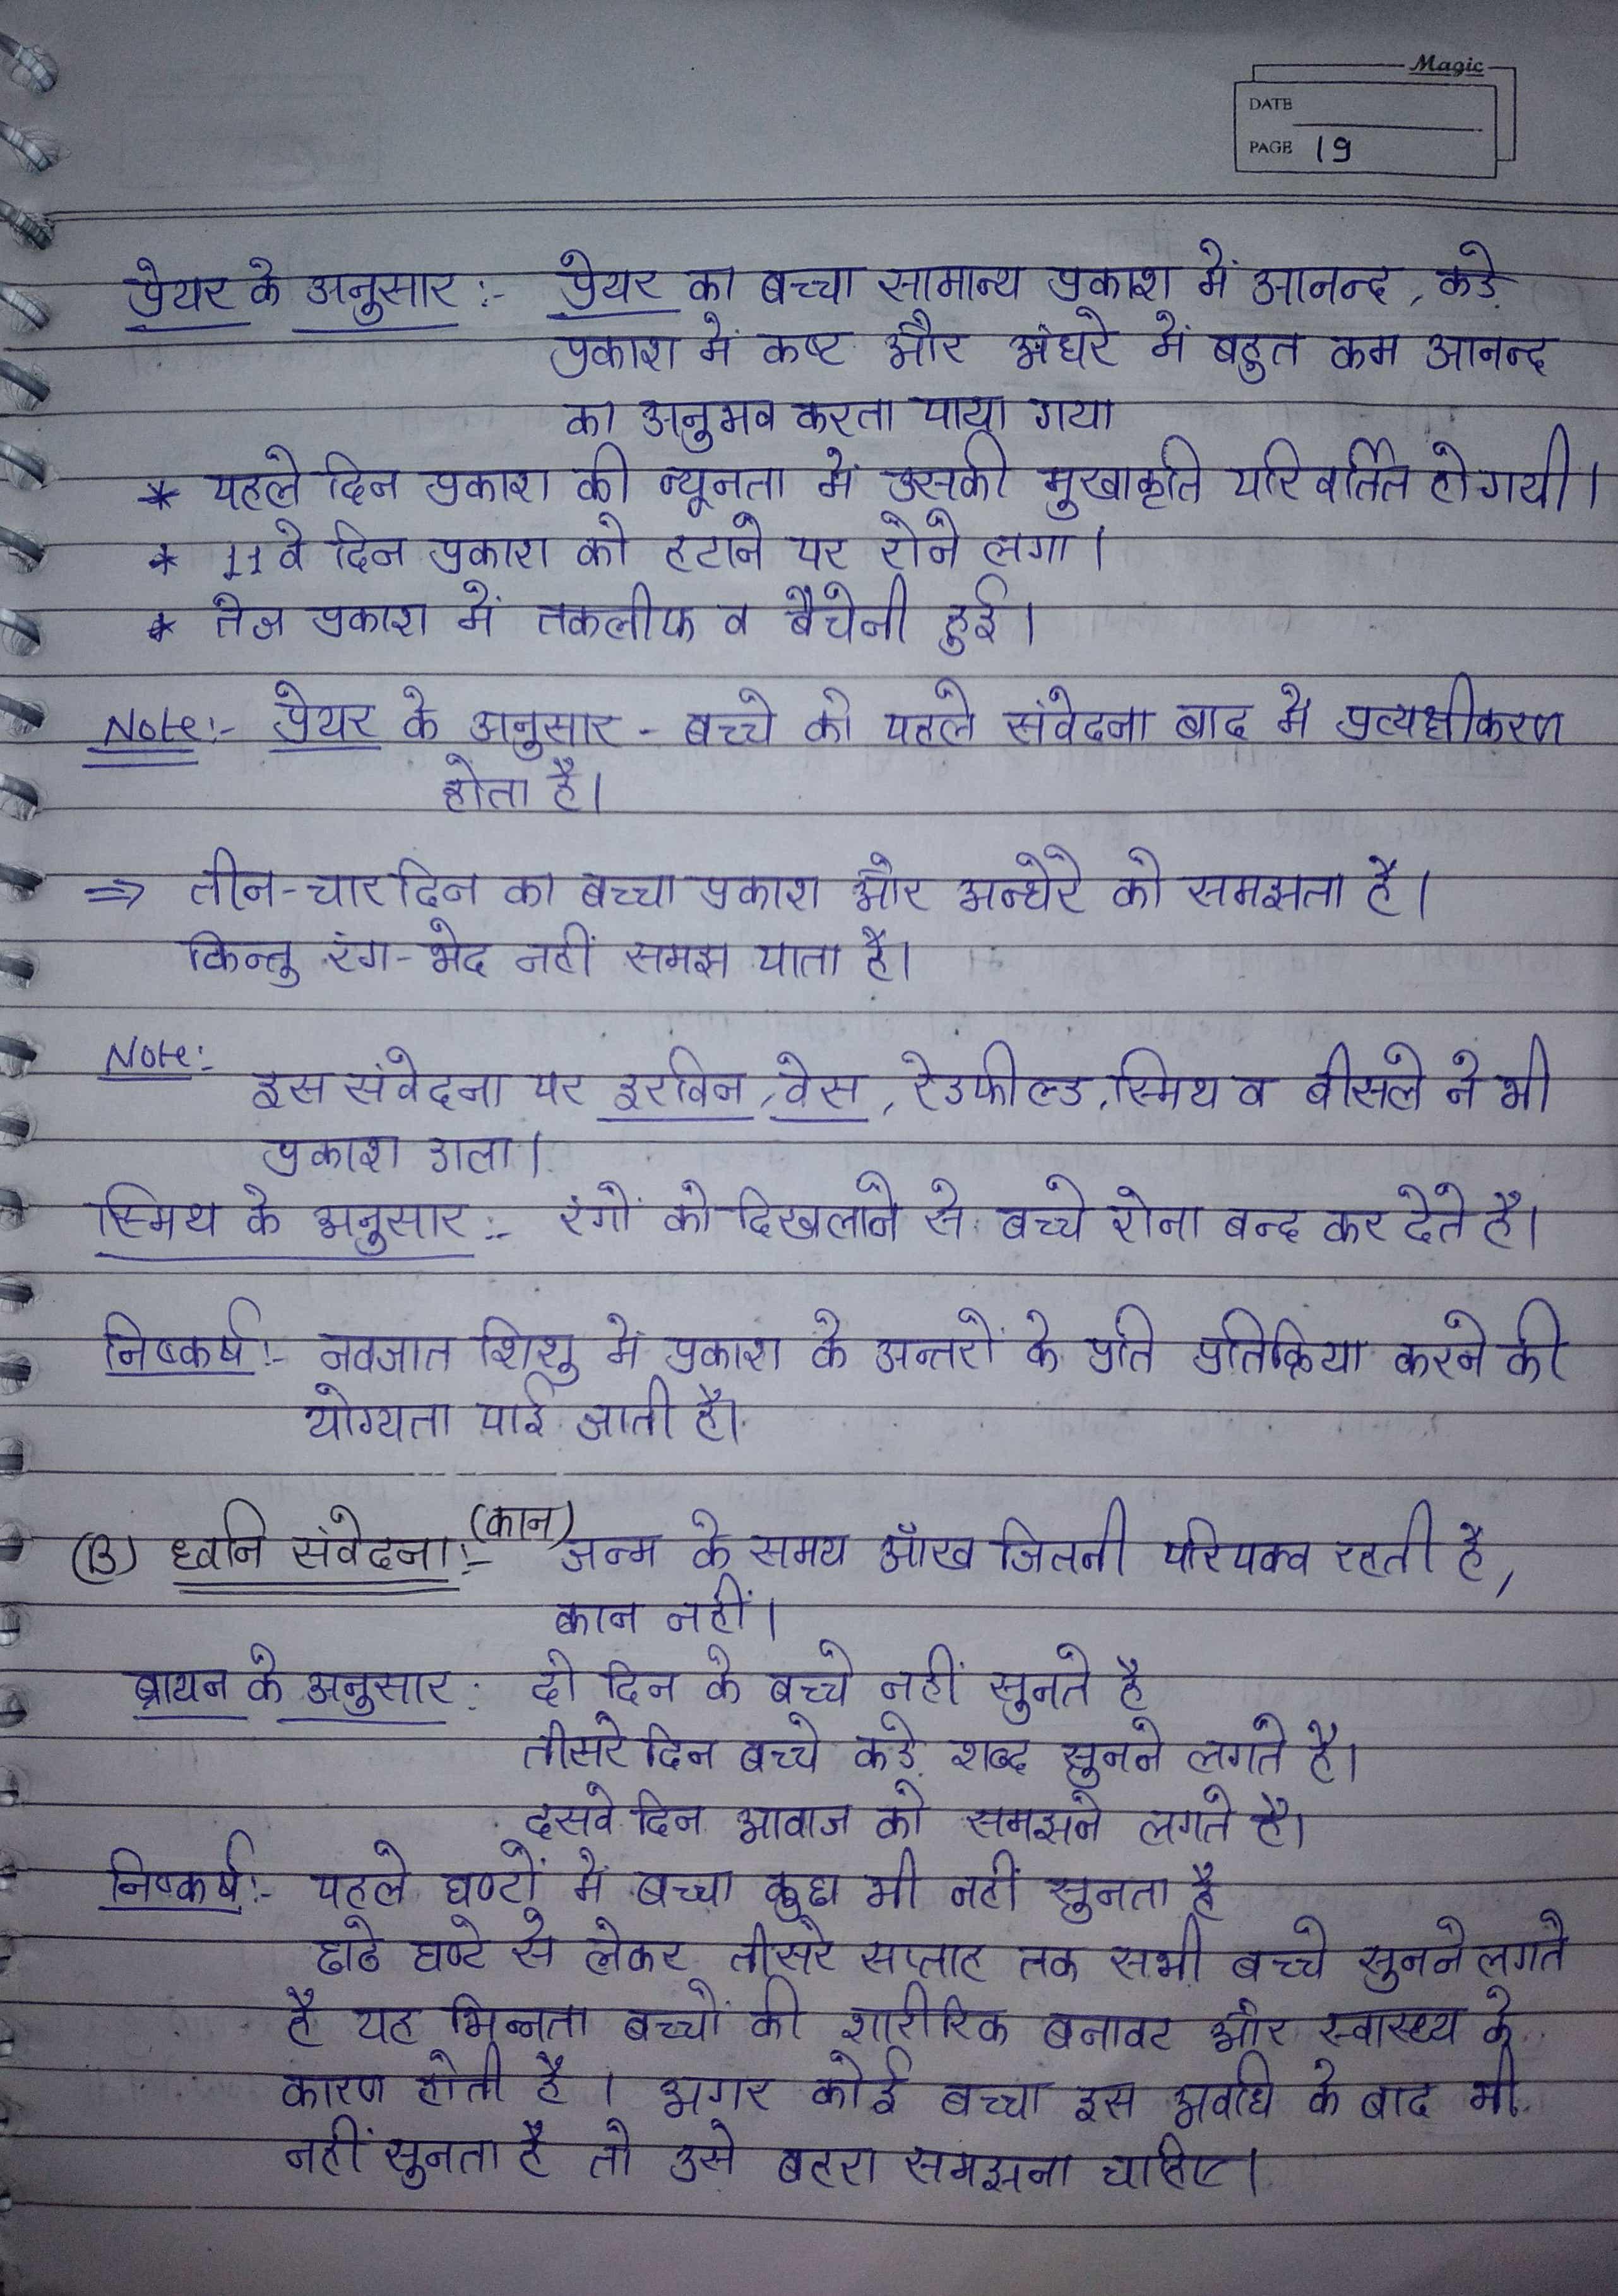 Magic
DATE
PAGE 19
प्रेयर के अनुसार :- प्रेयर का बच्चा सामान्य प्रकाश में आनन्द, कड़े
प्रकाश में कष्ट और अंधरे में बहुत कम आनन्द
का अनुभव करता पाया गया
* पहले दिन प्रकाश की न्यूनता में उसकी मुखाकृति परिवर्तित हो गयी।
* 11 वे दिन प्रकाश को हटाने पर रोने लगा।
* तेज प्रकाश में तकलीफ व बैचेनी हुई।
Note:- प्रेयर के अनुसार - बच्चे को पहले संवेदना बाद में प्रत्यक्षीकरण
होता है।
⇒ तीन-चार दिन का बच्चा प्रकाश और अन्धेरे को समझता है।
किन्तु रंग-भेद नहीं समझ पाता है।
Note:
इस संवेदना पर इरविन, वेस, रेडफील्ड, स्मिथ व बीसले ने भी
प्रकाश डाला।
स्मिथ के अनुसार :- रंगों को दिखलाने से बच्चे रोना बन्द कर देते है।
निष्कर्ष :- नवजात शिशु में प्रकाश के अन्तरों के प्रति प्रतिक्रिया करने की
योग्यता पाई जाती है।
(B) ध्वनि संवेदना :- (कान) जन्म के समय आँख जितनी परिपक्व रहती है,
कान नहीं।
ब्रायन के अनुसार : दो दिन के बच्चे नहीं सुनते है
तीसरे दिन बच्चे कड़े शब्द सुनने लगते है।
दसवे दिन आवाज को समझने लगते है।
निष्कर्ष :- पहले घण्टों में बच्चा कुछ भी नहीं सुनता है
ढाढे घण्टे से लेकर तीसरे सप्ताह तक सभी बच्चे सुनने लगते
है यह भिन्नता बच्चों की शारीरिक बनावट और स्वास्थ्य के
कारण होती है । अगर कोई बच्चा इस अवधि के बाद भी
नहीं सुनता है तो उसे बहरा समझना चाहिए।